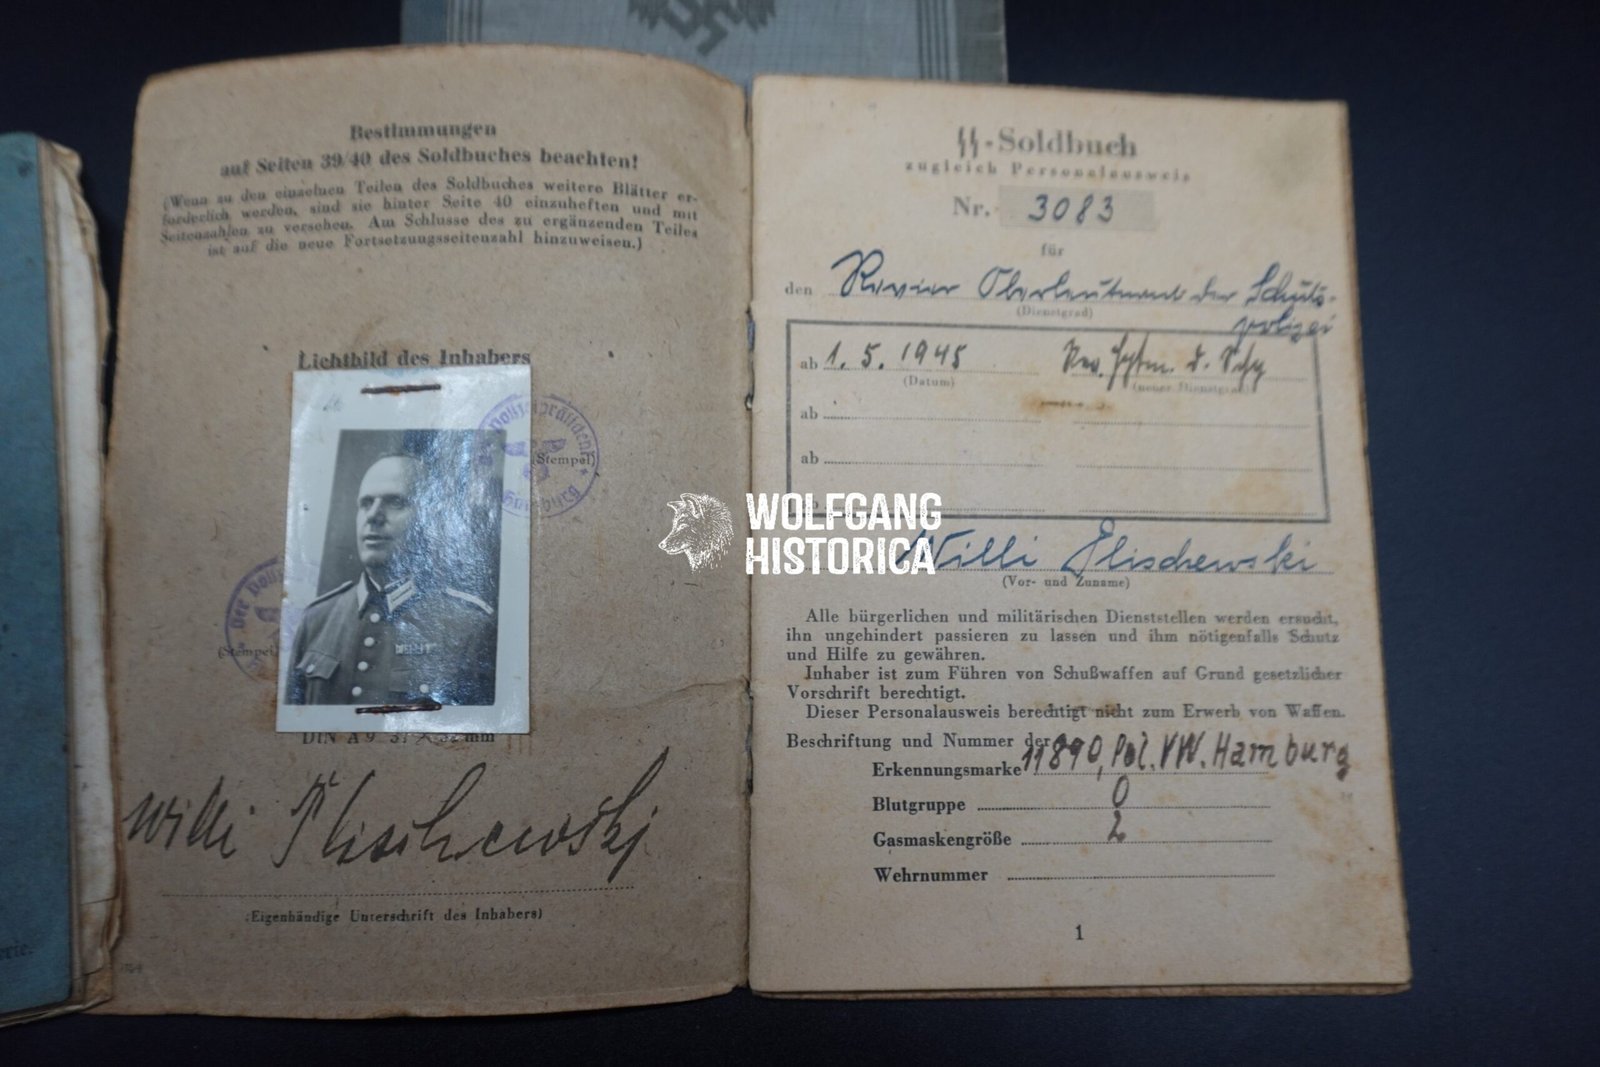 Bestimmungen
auf Seiten 39/40 des Soldbuches beachten!
(Wenn zu den einzelnen Teilen des Soldbuches weitere Blätter er-
forderlich werden, sind sie hinter Seite 40 einzuheften und mit
Seitenzahlen zu versehen. Am Schlusse des zu ergänzenden Teiles
ist auf die neue Fortsetzungsseitenzahl hinzuweisen.)
Lichtbild des Inhabers
Polizeipräsident
(Stempel)
Hamburg
Der
(Stempel)
DIN A 9
mm
Willi Elischewski
(Eigenhändige Unterschrift des Inhabers)
ϟϟ-Soldbuch
zugleich Personalausweis
Nr. 3083
für
den Revier Oberleutnant der Schutz-
polizei
(Dienstgrad)
ab 1.5.1945 Rev. Hptm. d. Sch
(Datum) (neuer Dienstgrad)
ab
ab
ab
WOLFGANG
HISTORICA
Willi Elischewski
(Vor- und Zuname)
Alle bürgerlichen und militärischen Dienststellen werden ersucht,
ihn ungehindert passieren zu lassen und ihm nötigenfalls Schutz
und Hilfe zu gewähren.
Inhaber ist zum Führen von Schußwaffen auf Grund gesetzlicher
Vorschrift berechtigt.
Dieser Personalausweis berechtigt nicht zum Erwerb von Waffen.
Beschriftung und Nummer der
Erkennungsmarke 11890, Pol. VW. Hamburg
Blutgruppe 0
Gasmaskengröße 2
Wehrnummer
1